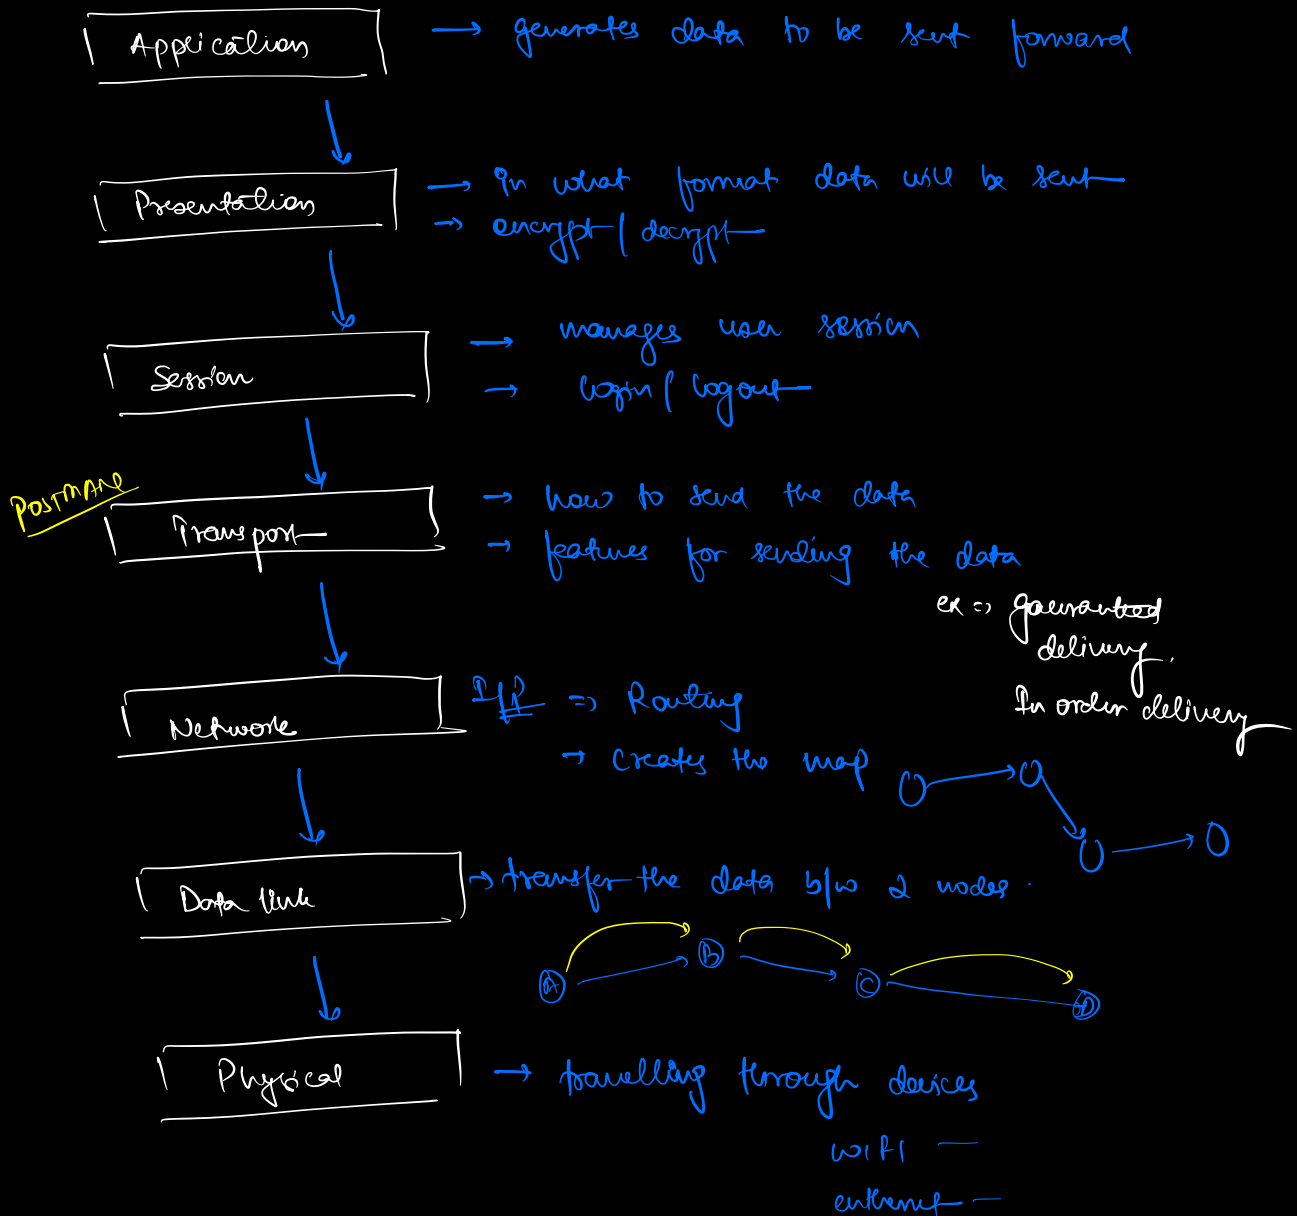 Application → generates data to be sent forward
Presentation → in what format data will be sent
→ encrypt / decrypt
Session → manages user session
→ login / logout
POSTMAN
Transport → how to send the data
→ features for sending the data
ex => gauranteed
delivery.
In order delivery
Network I/P => Routing
→ creates the map
Data link → transfer the data b/w 2 nodes.
A B C D
Physical → travelling through devices
WIFI —
enthernet —